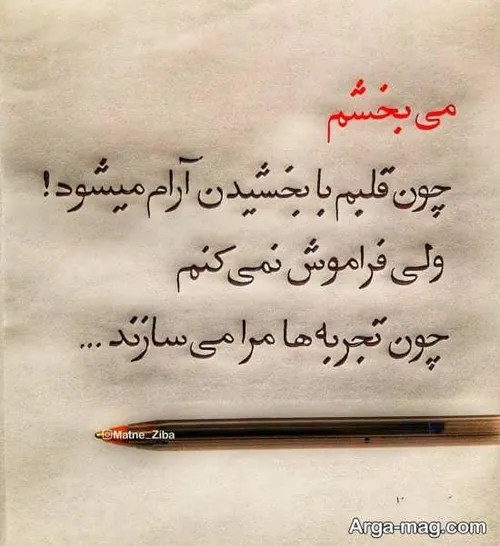 می بخشم
چون قلبم با بخشیدن آرام میشود!
ولی فراموش نمی کنم
چون تجربه ها مرا می سازند ...
Matne_Ziba
۱۰
Arga-mag.com